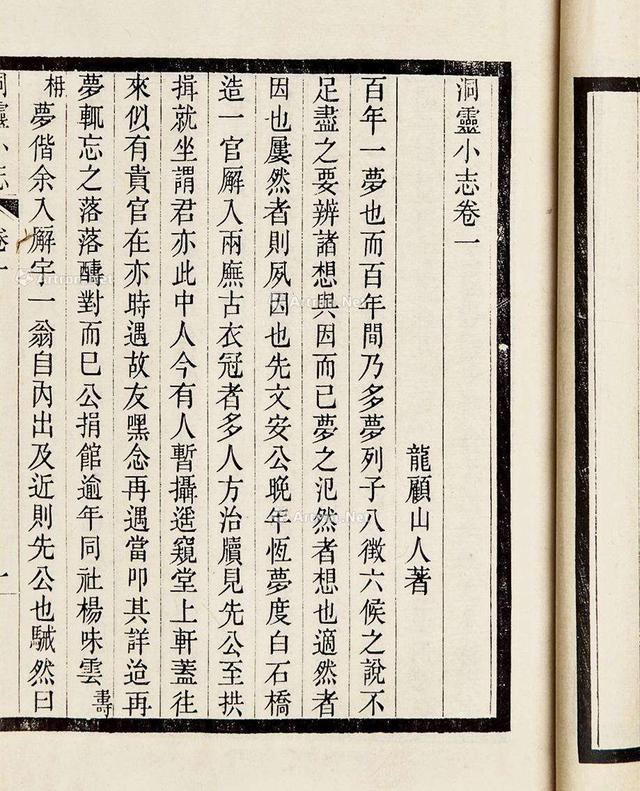 洞靈小志卷一
龍顧山人著
百年一夢也而百年間乃多夢列子八徵六候之說不
足盡之要辨諸想與因而已夢之氾然者想也適然者
因也屢然者則夙因也先文安公晚年恆夢度白石橋
造一官廨入兩廡古衣冠者多人方治牘見先公至拱
揖就坐謂君亦此中人今有人暫攝遙窺堂上軒蓋往
來似有貴官在亦時遇故友嘿念再遇當叩其詳迨再
夢輒忘之落落醻對而已公捐館逾年同社楊味雲壽
枏夢偕余入廨宇一翁自內出及近則先公也駴然曰
洞靈小志 卷一 一
Artron.Net